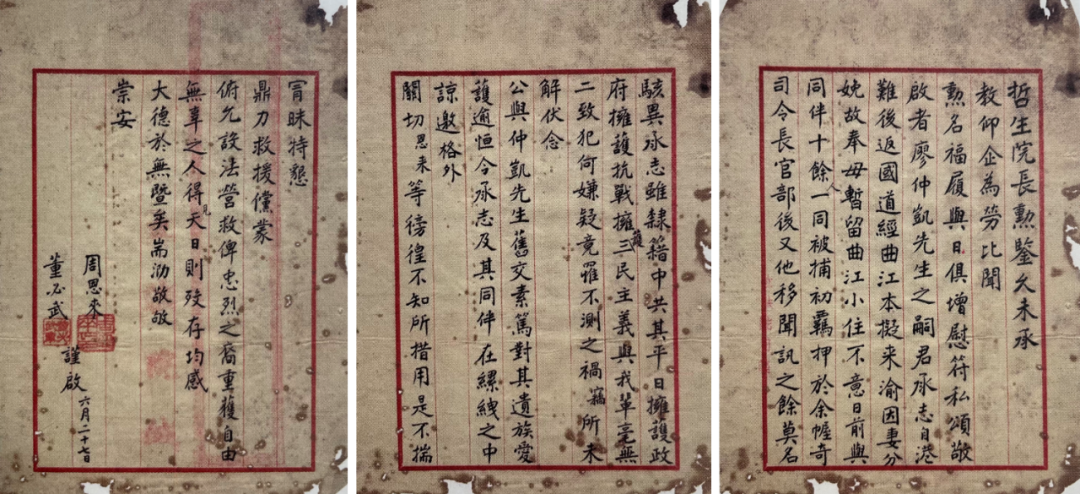 哲生院長勳鑒久未承
教仰企為勞比聞
勳名福履與日俱增慰符私頌敬
啟者廖仲凱先生之嗣君承志自港
難後返國道經曲江本擬來渝因妻分
娩故奉母暫留曲江小住不意日前與
同伴十餘人一同被捕初羈押於余幄奇
司令長官部後又他移聞訊之餘莫名
駭異承志雖隸籍中共其平日擁護政
府擁護抗戰擁護三民主義與我輩毫無
二致犯何嫌疑竟罹不測之禍竊所未
解伏念
公與仲凱先生舊交素篤對其遺族愛
護逾恒今承志及其同伴在縲絏之中
諒邀格外
關切恩来等徬徨不知所措用是不揣
冒昧特懇
鼎力救援儻蒙
俯允設法營救俾忠烈之裔重獲自由
無辜之人得見天日則歿存均感
大德於無暨矣耑泐敬敂
崇安
周恩来
董必武
謹啟
六月二十七日